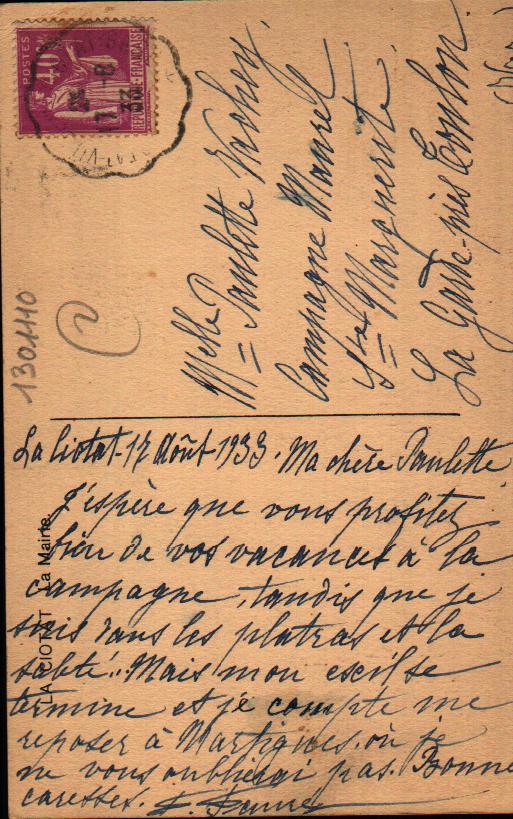 POSTES
40c
REPUBLIQUE FRANÇAISE
17-8
33
1301110
Melle Paulette Vachey
Campagne Maurel
Ste Marguerite
La Garde-près Toulon.
(Var)
La Ciotat-17 Août-1933. Ma chère Paulette
J'espère que vous profitez
bien de vos vacances à la
campagne, tandis que je
suis dans les platras et la
saleté... Mais mon exil se
termine et je compte me
reposer à Martigues. où je
ne vous oublierai pas. Bonne
caresses.
LA CIOTAT La Mairie